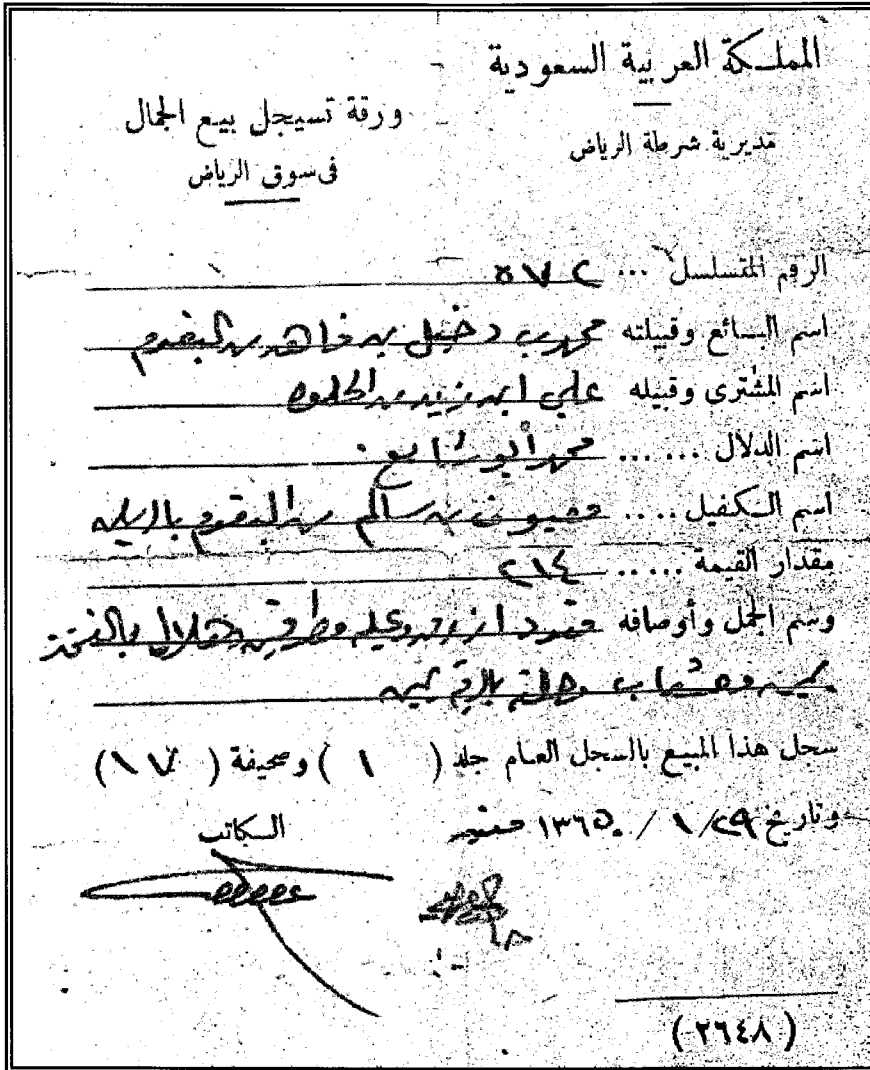 المملكة العربية السعودية
مديرية شرطة الرياض
ورقة تسيجل بيع الجمال
فى سوق الرياض
الرقم المتسلسل ... ٥٧٢
اسم البائع وقبيلته محمد بن دخيل بن من البقوم
اسم المشترى وقبيله علي ابن زيد من الحلوه
اسم الدلال ... ... محمد أبو شايع
اسم الكفيل .... بن سالم من البقوم
مقدار القيمة ..... ٢١٤
وسم الجمل وأوصافه وهلال بالفخذ
يمين
سجل هذا المبيع بالسجل العام جلد ( ١ ) وصحيفة ( ١٧ )
وتاريخ ٢٩/ ١ / ١٣٦٥
الكاتب
(٢٦٤٨)